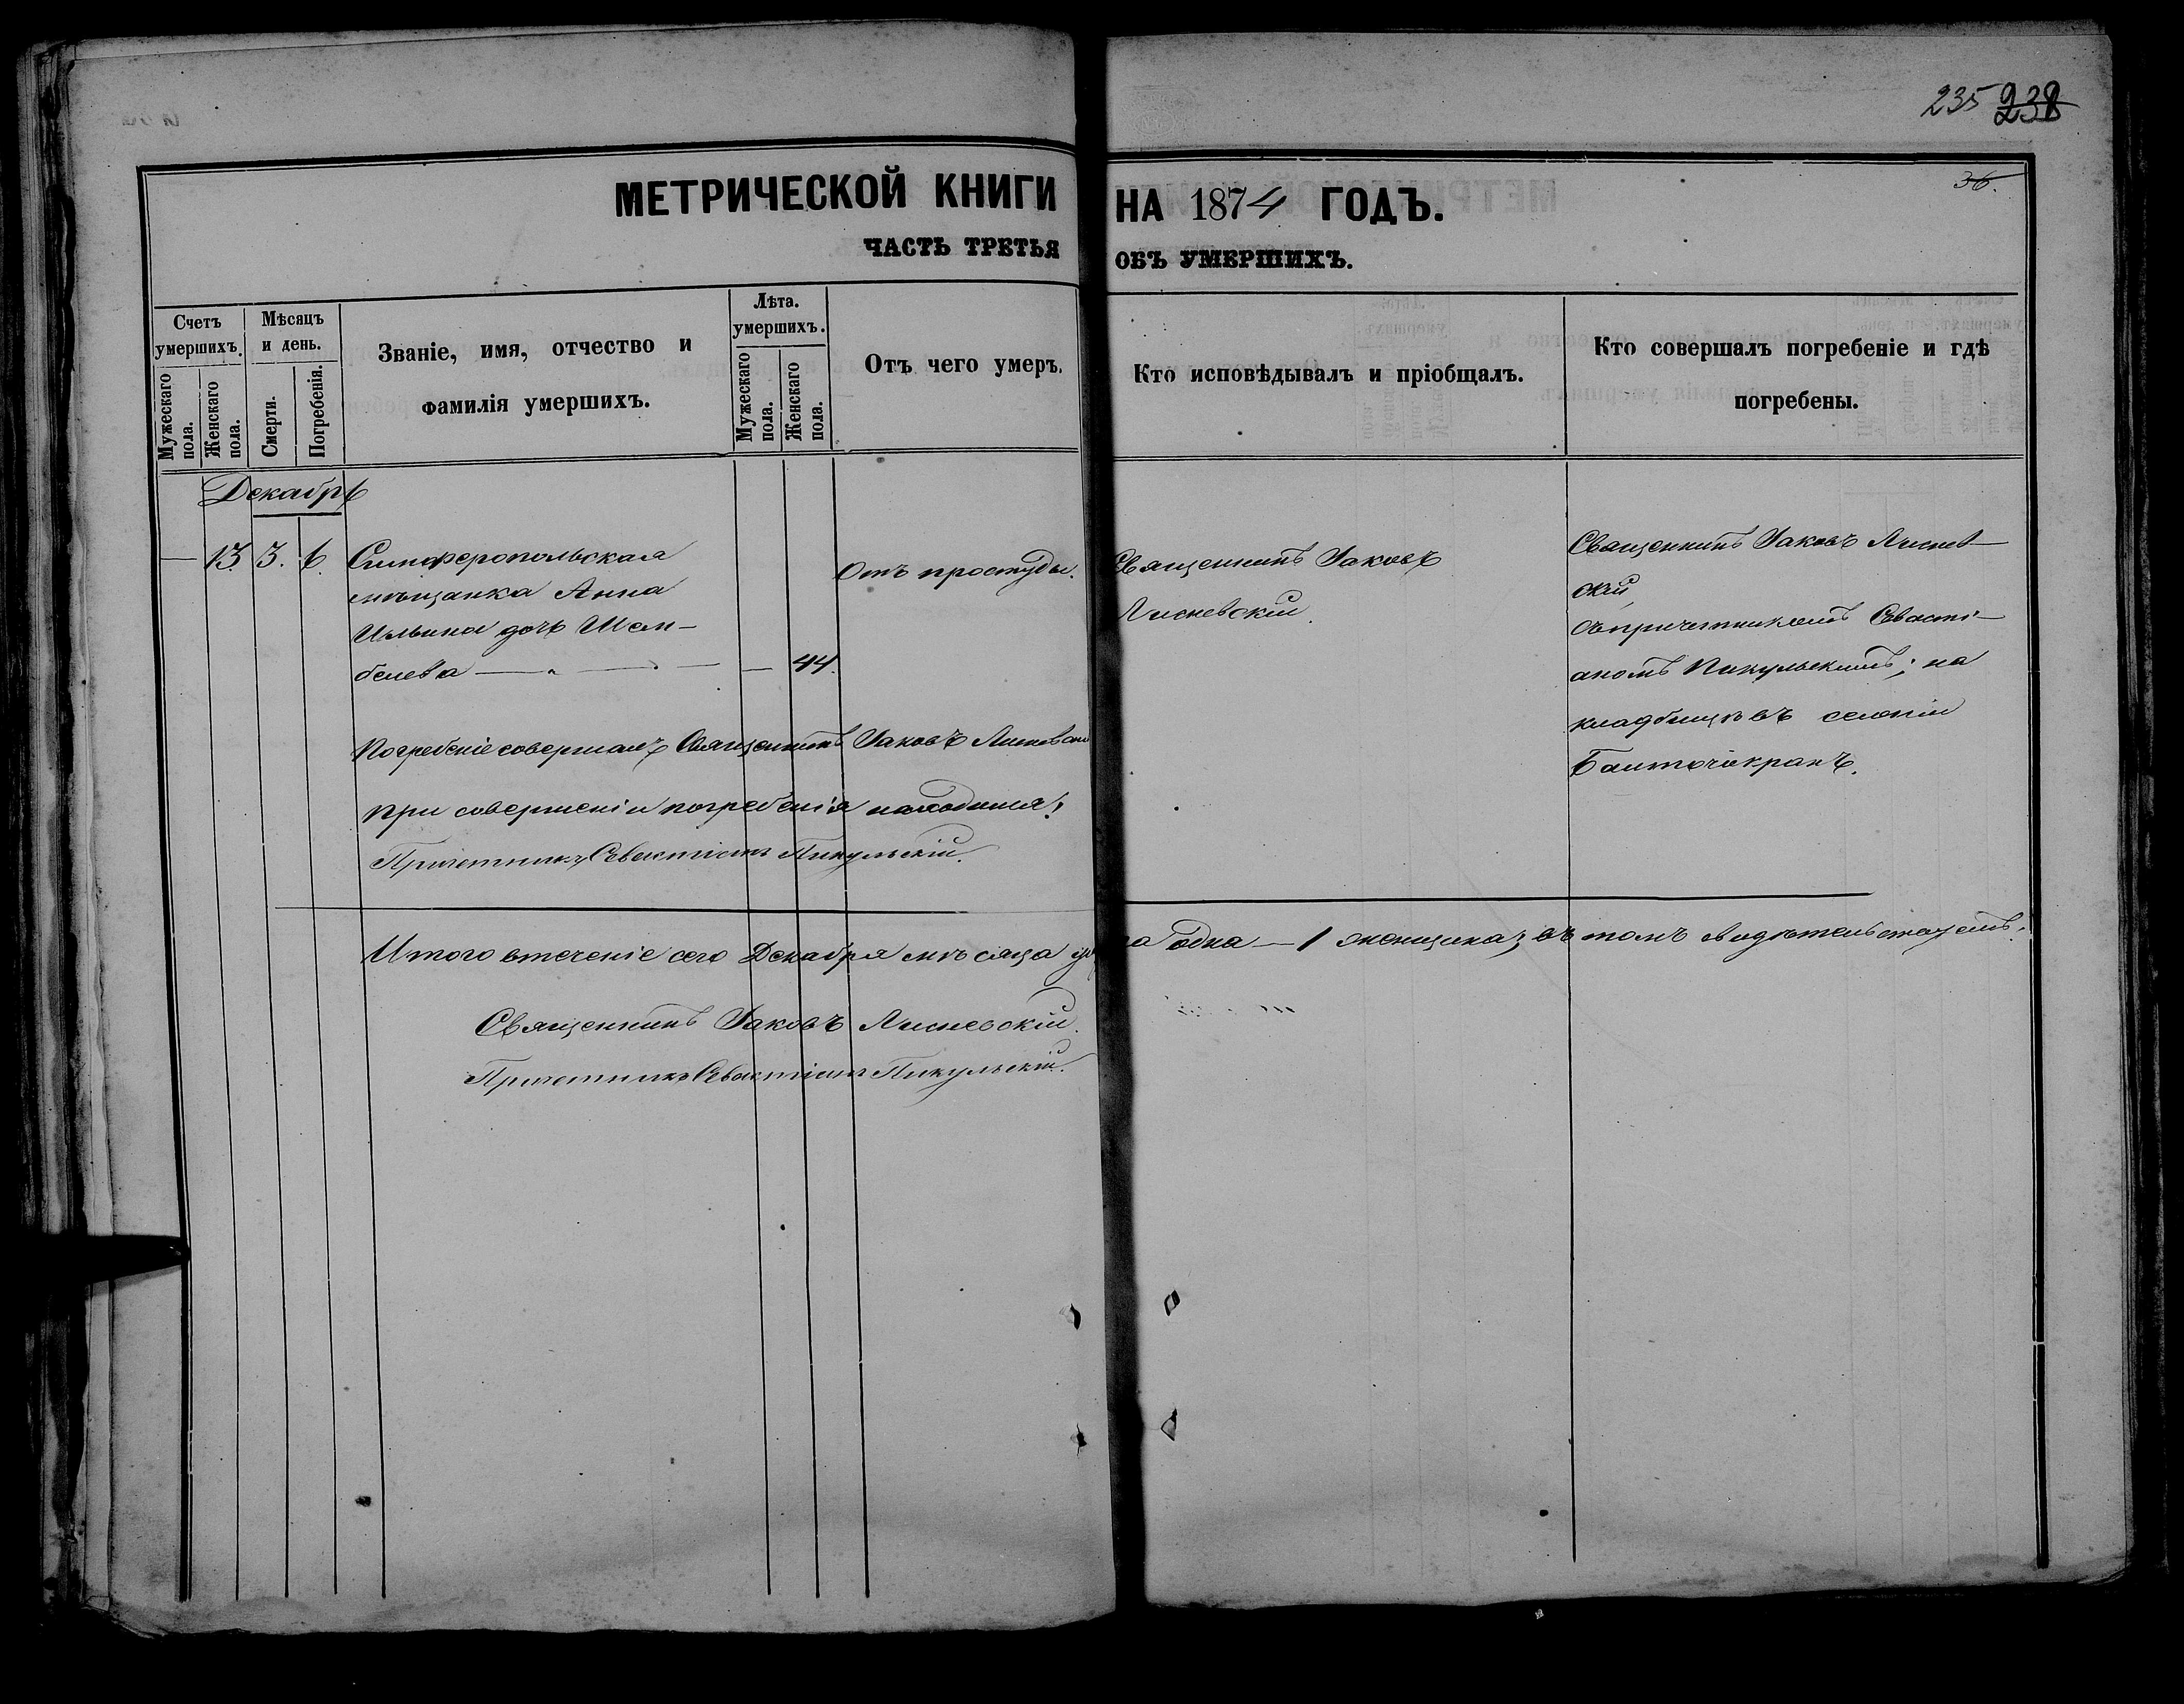 235 238
36.
МЕТРИЧЕСКОЙ КНИГИ НА 1874 ГОДЪ.
ЧАСТЬ ТРЕТЬЯ ОБЪ УМЕРШИХЪ.
Счетъ умершихъ.
Мужескаго пола.
Женскаго пола.
Мѣсяцъ и день.
Смерти.
Погребенія.
Званіе, имя, отчество и
фамилія умершихъ.
Лѣта.
умершихъ.
Мужескаго пола.
Женскаго пола.
Отъ чего умеръ.
Кто исповѣдывалъ и пріобщалъ.
Кто совершалъ погребеніе и гдѣ
погребены.
Декабрь
— 13. 3. 6. Симферопольская
мѣщанка Анна
Ильина дочь Шем-
белева — — — 44.
Отъ простуды.
Священникъ Іаковъ
Лисневскій.
Священникъ Іаковъ Лиснев-
скій,
съ причетникомъ Севасті-
аномъ Пикульскимъ; на
кладбищѣ въ селеніи
Погребеніе совершалъ Священникъ Іаковъ Лисневскій
При совершеніи погребенія находился:
Причетникъ Севастіанъ Пикульскій.
Итого втеченіе сего Декабря мѣсяца одна — 1 женщина; въ томъ свидѣтельствуемъ.
Священникъ Іаковъ Лисневскій.
Причетникъ Севастіанъ Пикульскій.